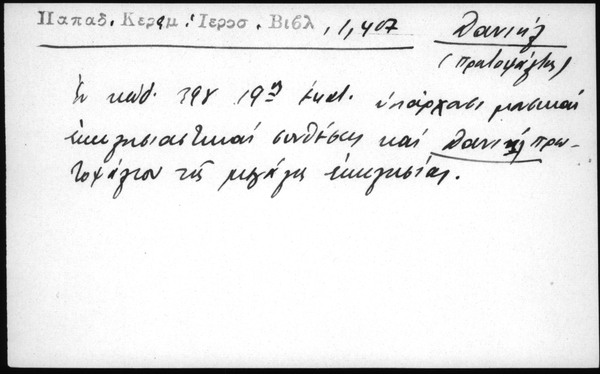 Παπαδ. Κεραμ. Ιεροσ. Βιβλ, 1, 407 Δανιήλ
(πρωτοψάλτης)
Ἐν κώδ. 398 19ης ἑκατ. ὑπάρχουσι μουσικαὶ
ἐκκλησιαστικαὶ συνθέσεις καὶ Δανιήλ πρω-
τοψάλτου τῆς μεγάλης ἐκκλησίας.